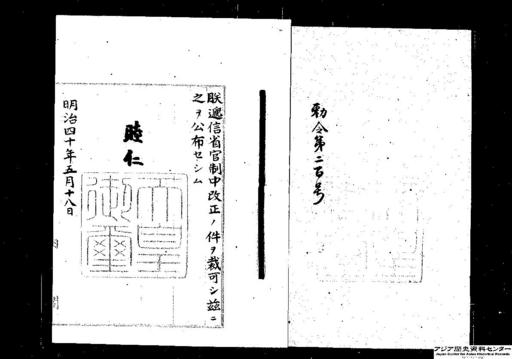 勅令第二百号
朕逓信省官制中改正ノ件ヲ裁可シ茲ニ
之ヲ公布セシム
睦仁
天皇御璽
明治四十年五月十八日
アジア歴史資料センター
Japan Center for Asian Historical Records